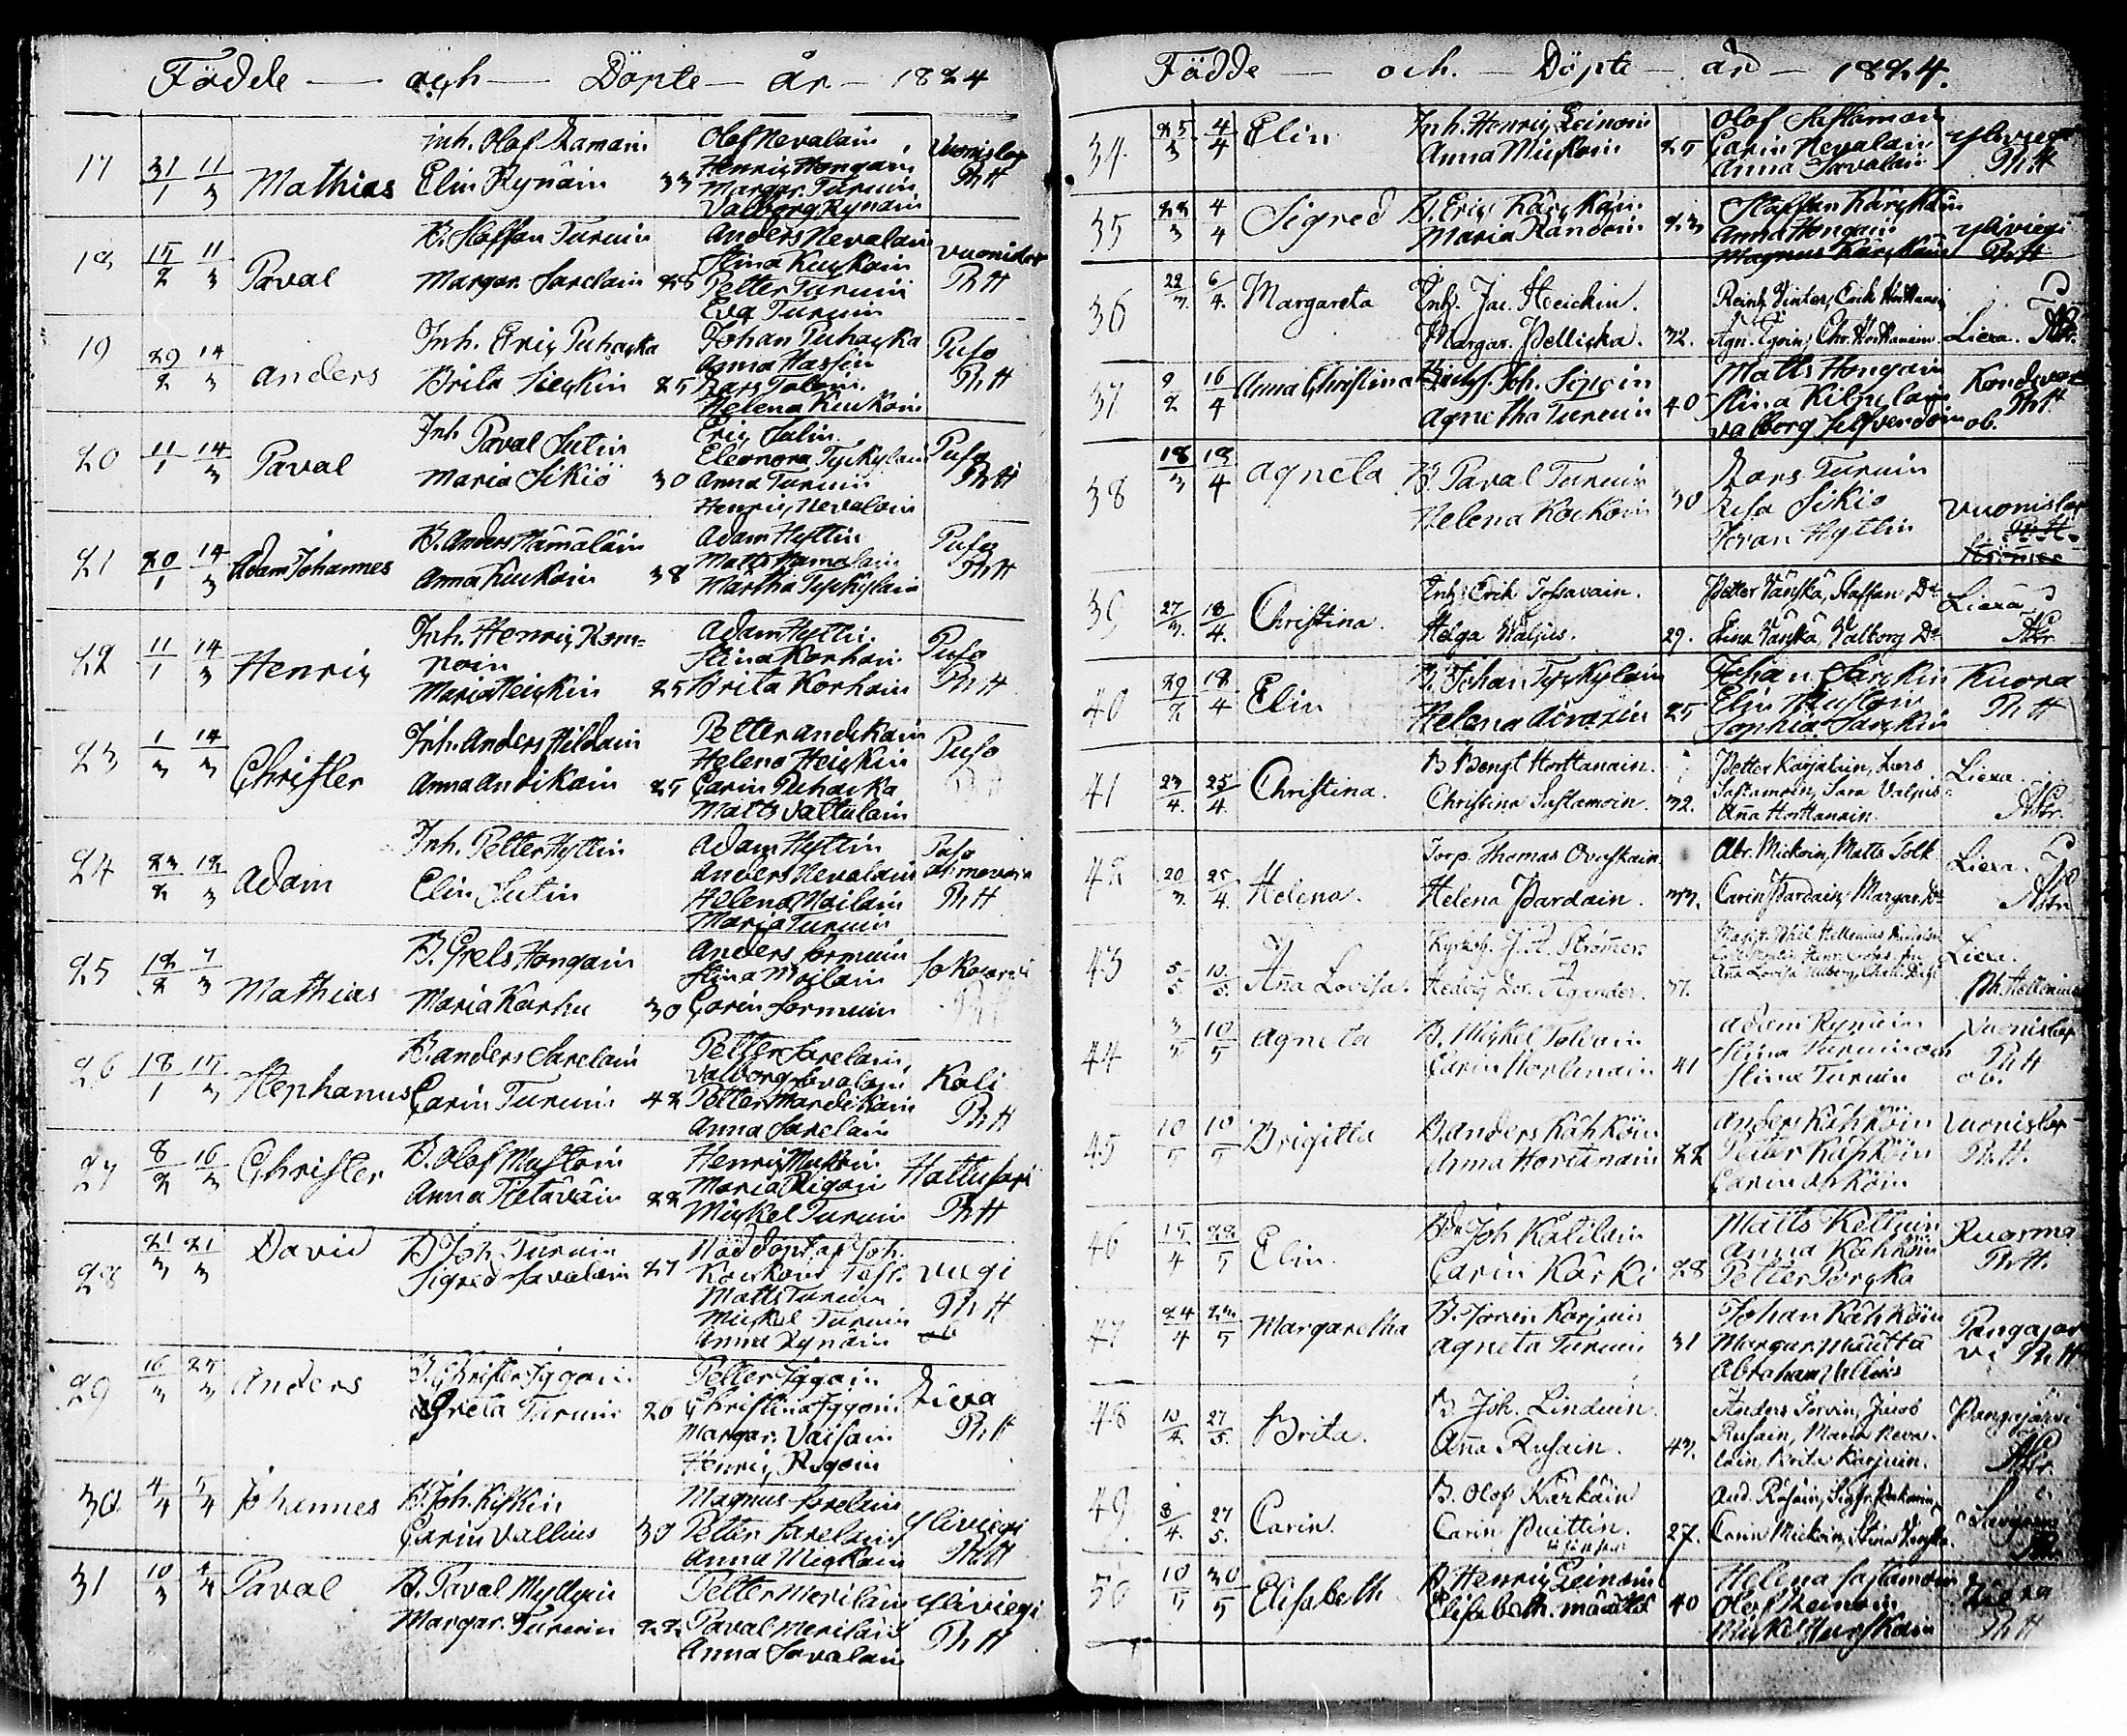 Födde — och — Döpte — år — 1824
17 31/1 11/3 Mathias
Inh. Olof Ramain
Elin Rynäin 33
Olof Nevalain
Henric Hongain
Margar. Turuin
Valborg Rynäin
Vuonislax
Ph H
18 15/2 11/3 Paval
B. Staffan Turuin
Margar. Sarelain 28
Anders Nevalain
Stina Kuckain
Petter Turuin
Eva Turuin
Vuonislax
Ph H
19 29/2 14/3 Anders
Inh. Eric Puhacka
Brita Sieckin 25
Johan Puhacka
Anna Hassin
Lars Tolain
Helena Kuckain
Puso
Ph H
20 11/1 14/3 Paval
Inh. Paval Sutin
Maria Sikiö 30
Eric Salin
Eleonora Tyckylain
Anna Turuin
Henric Nevalain
Puso
Ph H
21 20/1 14/3 Adam Johannes
B. Anders Hämäläin
Anna Kuckain 38
Adam Hyttin
Matts Hämäläin
Martha Tyckylain
Puso
Ph H
22 11/1 14/3 Henric
Inh. Henric Kom=
pain
Maria Heickin 25
Adam Hyttin
Stina Korhoin
Brita Korhoin
Puso
Ph H
23 1/3 14/3 Christer
Inh. Anders Hildain
Anna Andikain 25
Petter Andikain
Helena Heickin
Carin Puhacka
Matts Vattulain
Puso
Ph H
24 23/2 12/3 Adam
Inh. Petter Hyttin
Elin Sutin
Adam Hyttin
Anders Nevalain
Helena Mailain
Maria Turuin
Puso
Ph H
25 12/2 7/3 Mathias
B. Grels Hongain
Maria Karhu 30
Anders Sormuin
Stina Moilain
Carin Sormuin
26 18/1 15/3 Stephanus
B. Anders Sarelain
Carin Turuin 42
Petter Sarelain
Valborg Savalain
Petter Mardikain
Anna Sarelain
Koli
Ph H
27 8/2 16/3 Christer
B. Olof Mustoin
Anna Tietäväin 22
Henric Mustoin
Maria Rigoin
Mickel Turuin
Hattusari
Ph H
28 21/3 21/3 David
B Joh. Turuin
Sigred Savalain 27
Nöddöpt af Joh.
Matts Turuin
Mickel Turuin
Anna Rynäin
Viegi
Ph H
ob
29 16/3 25/3 Anders
B. Christer Iggoin
Greta Turuin 26
Petter Iggoin
Christina Iggoin
Margar. Väisäin
Henric Rigoin
Liexa
Ph H
30 4/4 5/4 Johannes
B. Joh. Kiskin
Carin Vallius 30
Magnus Sarelain
Petter Sarelain
Anna Mickain
Yliviegi
Ph H
31 10/3 4/4 Paval
B. Paval Myllyin
Margar. Turuin 22
Petter Meriläin
Paval Meriläin
Anna Savalain
Yliviegi
Ph H
Födde — och. — Döpte — år — 1824.
34 25/3 4/4 Elin
Inh. Henric Leinoin
Anna Mustoin 25
Olof Sastamoin
Carin Nevalain
Anna Savalain
Yliviegi
Ph H
35 22/3 4/4 Sigred
B. Eric Kärckäin
Maria Randoin 23
Staffan Kärckäin
Anna Hongain
Magnus Kärckäin
Yliviegi
Ph H
36 22/3. 6/4. Margareta
Inh. Jac. Heickin.
Margar. Pellicka. 32.
Liexa.
37 9/2 16/4 Anna Christina
Joh. Sigoin
Agnetha Turuin 40
Matts Hongain
Stina Kilpelain
Valborg Silfvendoin
Ph H
ob.
38 18/3 18/4 Agneta
B. Paval Turuin
Helena Kockoin 30
Lars Turuin
Lisa Sikiö
Göran Hyttin
Vuonislax
39 27/3. 18/4. Christina.
Inh. Erik Tossavain.
Helga Waljus. 29.
Petter Vänskä, Staffan Do
Elina Vänskä, Valborg Do
Liexa
40 29/2 18/4 Elin
B. Johan Tyckylain
Helena Aivaxin 25
Johan Sarckin
Elin Mustoin
Sophia Sarckin
Kuora
Ph H
41 23/4. 25/4. Christina.
B Bengt Horttanain.
Christina Sastamoin. 32.
Petter Karjalain, Lars
Sastamoin, Sara Valjus
Anna Horttanain.
Liexa.
42 20/3. 25/4. Helena.
Torp. Thomas Ovaskain.
Helena Pardain. 33.
Abr. Mickoin, Matts Tolk
Carin Pardain, Margar. Do
Liexa.
43 5/5. 10/5. Anna Lovisa.
J. A. Strömer.
Hedvig Agander. 37.
Liexa.
Ph. Hellenius
44 3/5 10/5 Agneta
B. Mickel Tolvain
Carin Hortanain 41
Adam Rynäin
Stina Turuin
Stina Turuin
Vuonislax
Ph H
ob.
45 10/5 10/5 Brigitta
B. Anders Kähköin
Anna Hortanain 22
Anders Kähköin
Petter Kähköin
Carin Kähköin
Vuonislax
Ph H.
46 15/4 22/5 Elin.
Joh Kätiläin
Carin Kärki 28
Matts Kettuin
Anna Kähköin
Petter Porocka
Ruorma
Ph H.
47 24/4 22/5 Margaretha
B. Jören Karjuin
Agneta Turuin 31
Johan Kähköin
Margar. Määttä
Abraham Vallius
Pangajär
vi Ph H
48 10/4. 27/5. Brita.
B. Joh. Linduin.
Anna Rusain. 43.
Anders Torvin, Jacob
Rusain, Maria Neva=
lain, Brita Karjuin.
Pangajärvi
49 8/4. 27/5. Carin.
B. Olof Kärkäin
Carin Puittin. 27.
50 10/5 30/5 Elisabeth
B. Henric Leinoin
Elisabeth Määttä 40
Helena Sastamoin
Olof Leinoin
Mickel Hurskain
Liexa
Ph H